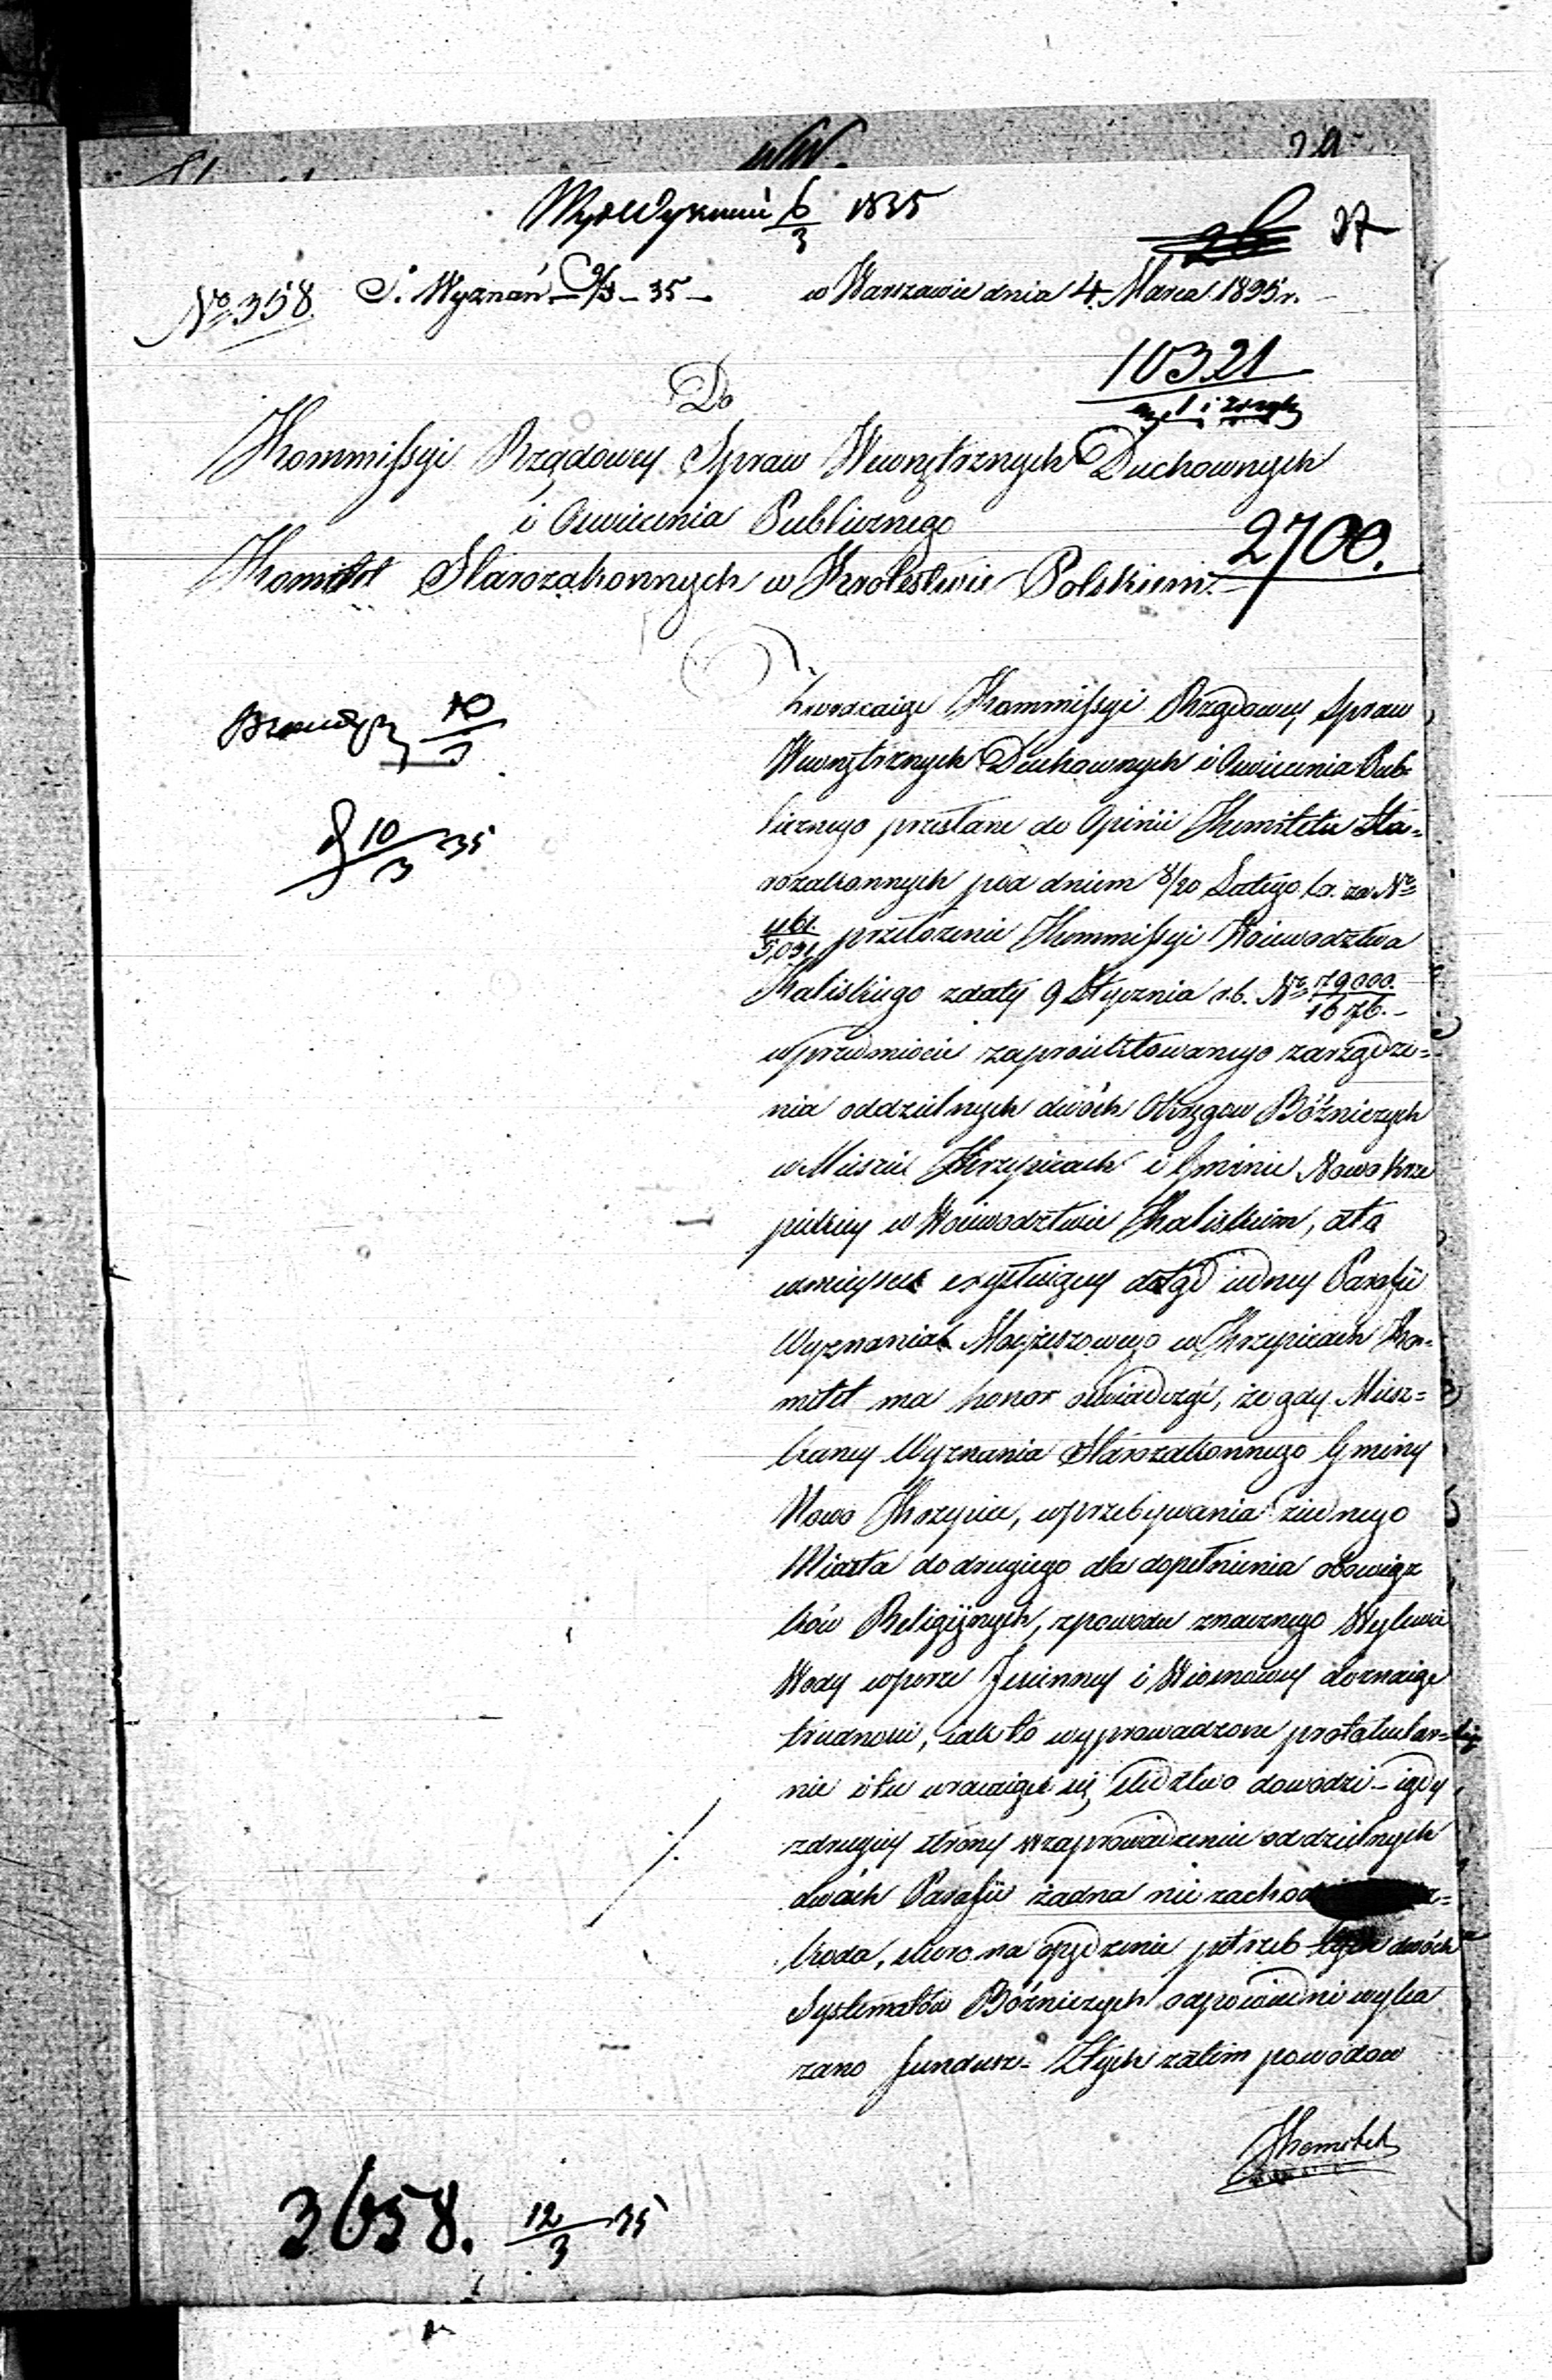 29
Wyd Wyznań 6/3 1835
26 37
No 358. S. Wyznań 9/3 - 35 - w Warszawie dnia 4. Marca 1835 r.
10321
Do
Kommissyi Rządowey Spraw Wewnętrznych Duchownych
i Oswiecenia Publicznego
2700.
Komitet Starozakonnych w Krolestwie Polskiem.
10/3
10/3 35
Zwracaiąc Kommissyi Rządowey Spraw
Wewnętrznych Duchownych i Oswiecenia Pub-
licznego przesłane do Opinii Komitetu Sta=
rozakonnych pod dniem 8/20 Lutego b.r. za Nr
przełożenie Kommissyi Woiewodztwa
Kaliskiego zdaty 9 Stycznia r.b. Nr 79000./1676. -
wprzedmiocie zaproiektowanego zarządze=
nia oddzielnych dwóch Okręgow Bóżniczych
w Miescie Krzepicach i Gminie Nowo Krze
pickiey w Woiewodztwie Kaliskim, ata
wmieysce exystuiącey dotąd iedney Parafii
Wyznania Mojżeszowego w Krzepicach Ko=
mitet ma honor oswiadczyć, że gdy Miesz=
kancy Wyznania Starozakonnego Gminy
Nowo Krzepice, wprzebywania ziednego
Miasta do drugiego dla dopełnienia obowiąz
ków Religijnych, zpowodu znacznego Wylewu
Wody wporze Jesienney i Wiosnowey doznaią
trudnosci, iak to wyprowadzone protokular=
nie i tu wracaiące się, sledztwo dowodzi - igdy
zdrugiey strony wzaprowadzeniu oddzielnych
dwóch Parafii żadna nie zachodzi
koda, skoro na opędzenie potrzeb tych dwóch
Systematów Bóżniczych odpowiedni wyka
zano fundusz. Ztych zatem powodow
Komitet
3658. 12/3 35